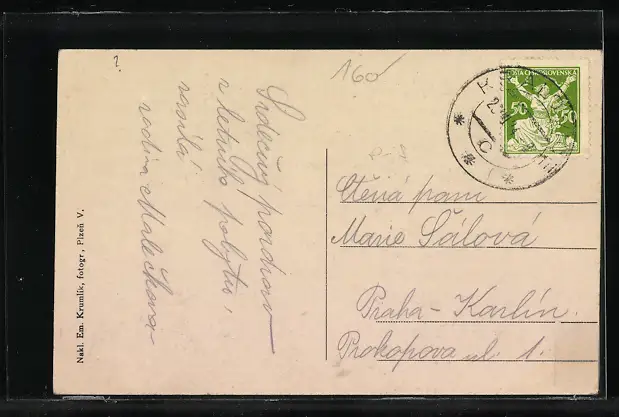 ?
160
Srdečný pozdrav
z letního pobytu,
zasílá
rodina Malečkova
Nakl. Em. Krumlik, fotogr., Plzeň V.
POŠTA ČESKOSLOVENSKÁ
50 50
Ctěná paní
Marie Šálová
Praha-Karlín.
Prokopova ul. 1.